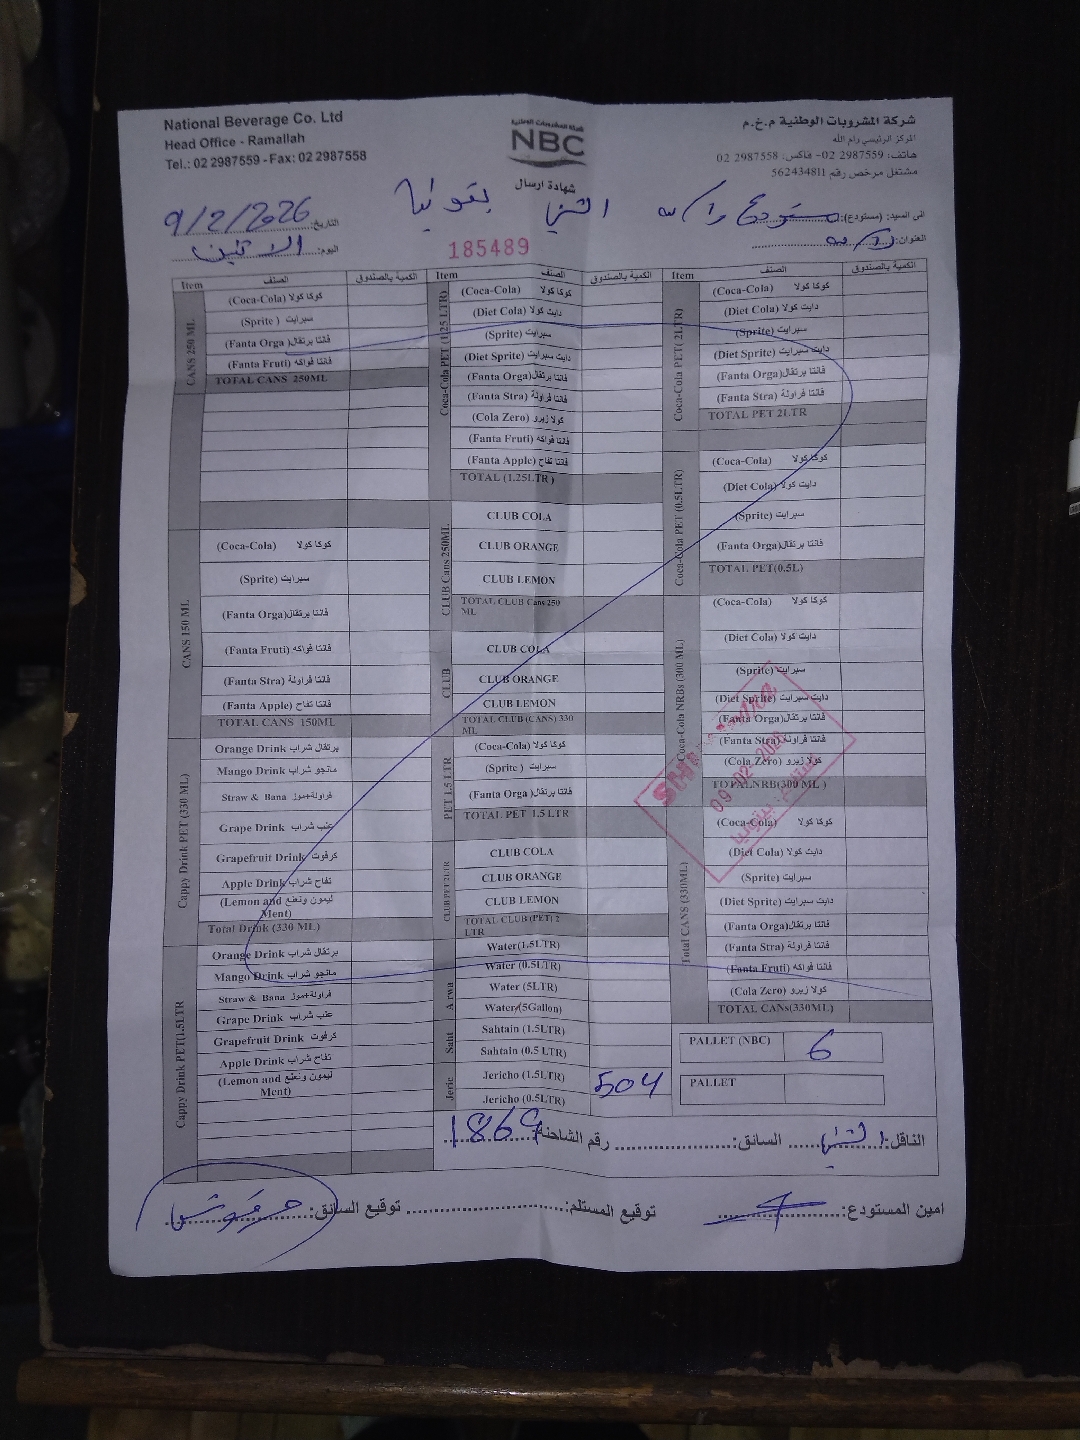 National Beverage Co. Ltd
Head Office - Ramallah
Tel.: 02 2987559 - Fax: 02 2987558
شركة المشروبات الوطنية
NBC
شركة المشروبات الوطنية م.خ.م
المركز الرئيسي رام الله
هاتف: 2987559 02- فاكس: 2987558 02
مشتغل مرخص رقم 562434811
شهادة ارسال
الى السيد: (مستودع):
العنوان:
التاريخ: 9/2/2026
اليوم: الاثنين
185489
Item الصنف الكمية بالصندوق
CANS 250 ML
(Coca-Cola) كوكا كولا
(Sprite ) سبرايت
(Fanta Orga) فانتا برتقال
(Fanta Fruti) فانتا فواكه
TOTAL CANS 250ML
CANS 150 ML
(Coca-Cola) كوكا كولا
(Sprite) سبرايت
(Fanta Orga) فانتا برتقال
(Fanta Fruti) فانتا فواكه
(Fanta Stra) فانتا فراولة
(Fanta Apple) فانتا تفاح
TOTAL CANS 150ML
Cappy Drink PET (330 ML)
Orange Drink برتقال شراب
Mango Drink مانجو شراب
Straw & Bana فراولة+موز
Grape Drink عنب شراب
Grapefruit Drink كرفوت
Apple Drink تفاح شراب
(Lemon and ليمون ونعنع
Ment)
Total Drink (330 ML)
Cappy Drink PET(1.5LTR
Orange Drink برتقال شراب
Mango Drink مانجو شراب
Straw & Bana فراولة+موز
Grape Drink عنب شراب
Grapefruit Drink كرفوت
Apple Drink تفاح شراب
(Lemon and ليمون ونعنع
Ment)
Item الصنف الكمية بالصندوق
Coca-Cola PET (1.25 LTR)
(Coca-Cola) كوكا كولا
(Diet Cola) دايت كولا
(Sprite) سبرايت
(Diet Sprite) دايت سبرايت
(Fanta Orga) فانتا برتقال
(Fanta Stra) فانتا فراولة
(Cola Zero) كولا زيرو
(Fanta Fruti) فانتا فواكه
(Fanta Apple) فانتا تفاح
TOTAL (1.25LTR )
CLUB Cans 250ML
CLUB COLA
CLUB ORANGE
CLUB LEMON
TOTAL CLUB Cans 250
ML
CLUB
CLUB COLA
CLUB ORANGE
CLUB LEMON
TOTAL CLUB (CANS) 330
ML
PET 1.5 LTR
(Coca-Cola) كوكا كولا
(Sprite ) سبرايت
(Fanta Orga ) فانتا برتقال
TOTAL PET 1.5 LTR
CLUB PET 2LTR
CLUB COLA
CLUB ORANGE
CLUB LEMON
TOTAL CLUB (PET) 2
LTR
Arwa
Water(1.5LTR)
Water (0.5LTR)
Water (5LTR)
Water/(5Gallon)
Saht
Sahtain (1.5LTR)
Sahtain (0.5 LTR)
Jeric
Jericho (1.5LTR) 504
Jericho (0.5LTR)
Item الصنف الكمية بالصندوق
Coca-Cola PET( 2LTR)
(Coca-Cola) كوكا كولا
(Diet Cola) دايت كولا
(Sprite) سبرايت
(Diet Sprite) دايت سبرايت
(Fanta Orga) فانتا برتقال
(Fanta Stra) فانتا فراولة
TOTAL PET 2LTR
Coca-Cola PET (0.5LTR)
(Coca-Cola) كوكا كولا
(Diet Cola) دايت كولا
(Sprite) سبرايت
(Fanta Orga) فانتا برتقال
TOTAL PET(0.5L)
Coca-Cola NRBs (300 ML)
(Coca-Cola) كوكا كولا
(Diet Cola) دايت كولا
(Sprite) سبرايت
(Diet Sprite) دايت سبرايت
(Fanta Orga) فانتا برتقال
(Fanta Stra) فانتا فراولة
(Cola Zero) كولا زيرو
TOTALNRB(300 ML )
Total CANS (330ML)
(Coca-Cola) كوكا كولا
(Diet Cola) دايت كولا
(Sprite) سبرايت
(Diet Sprite) دايت سبرايت
(Fanta Orga) فانتا برتقال
(Fanta Stra) فانتا فراولة
(Fanta Fruti) فانتا فواكه
(Cola Zero) كولا زيرو
TOTAL CANs(330ML)
PALLET (NBC) 6
PALLET
الناقل: السائق: رقم الشاحنة: 1869
امين المستودع: توقيع المستلم: توقيع السائق: